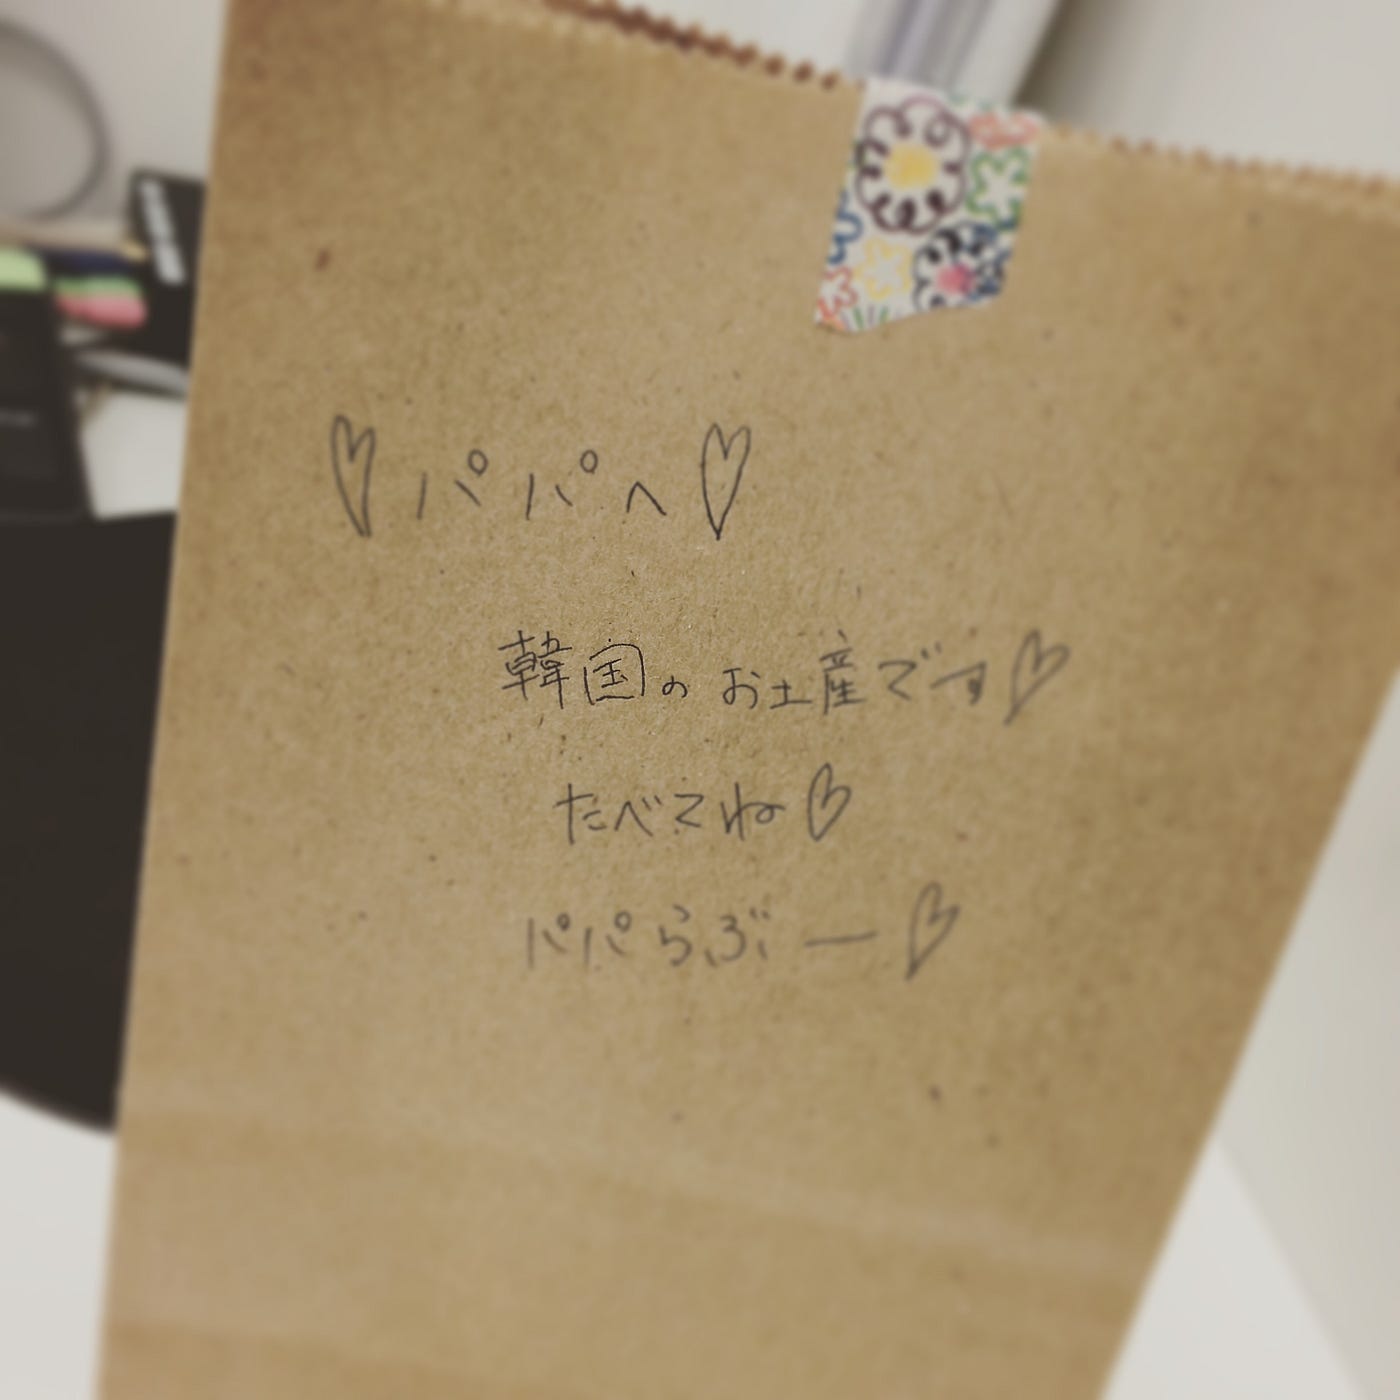 ♡パパへ♡
韓国のお土産です♡
たべてね♡
パパらぶー♡